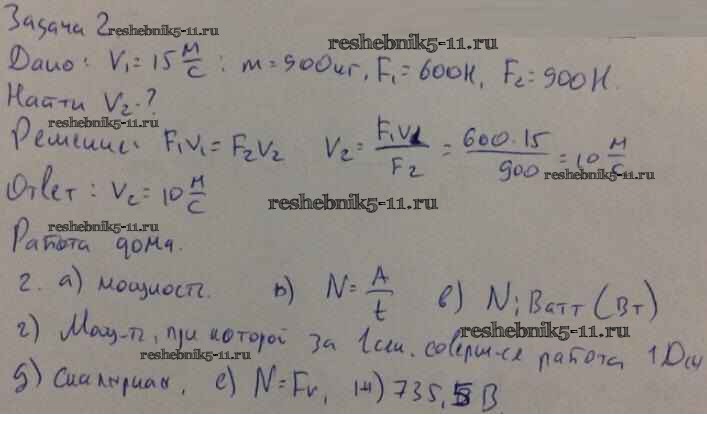 Задача 2 reshebnik5-11.ru
reshebnik5-11.ru
Дано: V₁ = 15 м/с; m = 900 кг, F₁ = 600 Н, F₂ = 900 Н.
Найти V₂-?
reshebnik5-11.ru
Решение: F₁V₁ = F₂V₂ V₂ = F₁V₁/F₂ = 600·15/900 = 10 м/с
reshebnik5-11.ru
Ответ: V₂ = 10 м/с
reshebnik5-11.ru
reshebnik5-11.ru
Работа дома.
2. а) мощность. б) N = A/t в) N; Ватт (Вт)
reshebnik5-11.ru
г) Мощ-ть, при которой за 1 сек. соверш-ся работа 1 Дж
reshebnik5-11.ru
д) Скалярная, е) N = Fv, ж) 735,5 В